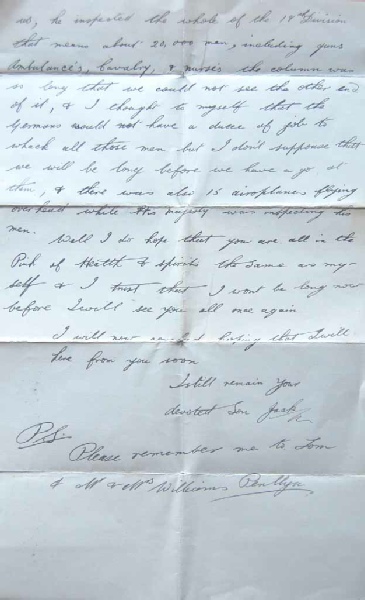 us, he inspected the whole of the 19th Division
that means about 20,000 men, including guns
Ambulance's, Cavalry, & nurses the column was
so long that we could not see the other end
of it, & I thought to myself that the
Germans would not have a duece of job to
whack all those men but I don't suppose that
we will be long before we have a go at
them, & there was also 15 airoplanes flying
overhead while His Majesty was inspecting his
men.
Well I do hope that you are all in the
Pink of Health & spirits the same as my-
self & I trust that I wont be long now
before I will see you all once again
I will now hoping that I will
here from you soon
I still remain Your
devoted Son Jack
P.S.
Please remember me to Tom
& Mr & Mrs Williams